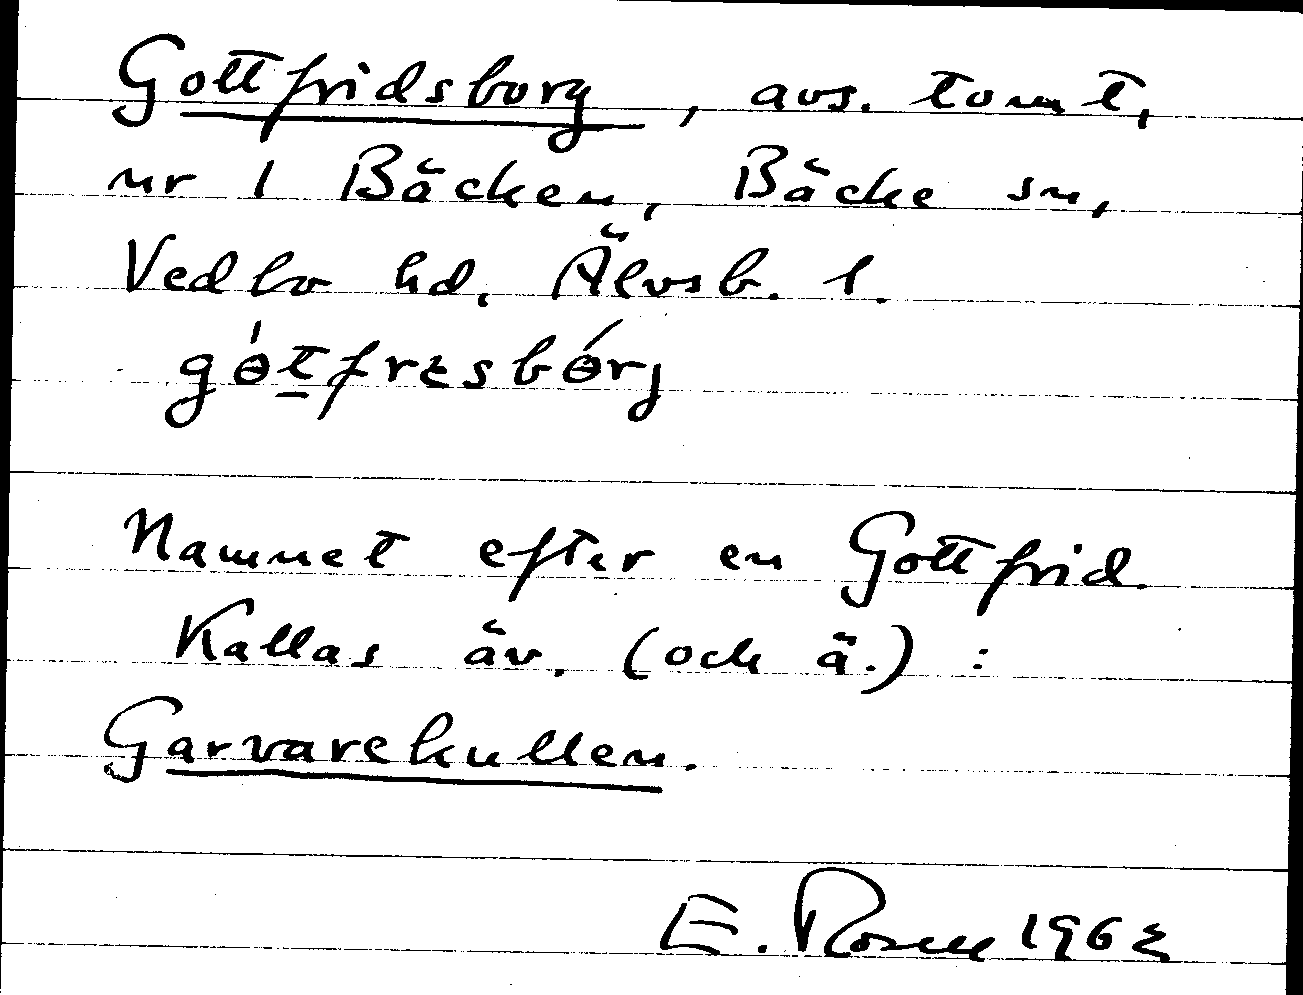 Gottfridsborg, avs. tomt,
nr 1 Bäcken, Bäcke sn,
Vedbo hd, Älvsb. l.
gө́t̲fresbө́rj
Namnet efter en Gottfrid.
Kallas äv. (och ä.) :
Garvarekullen.
E. Rosell 1962